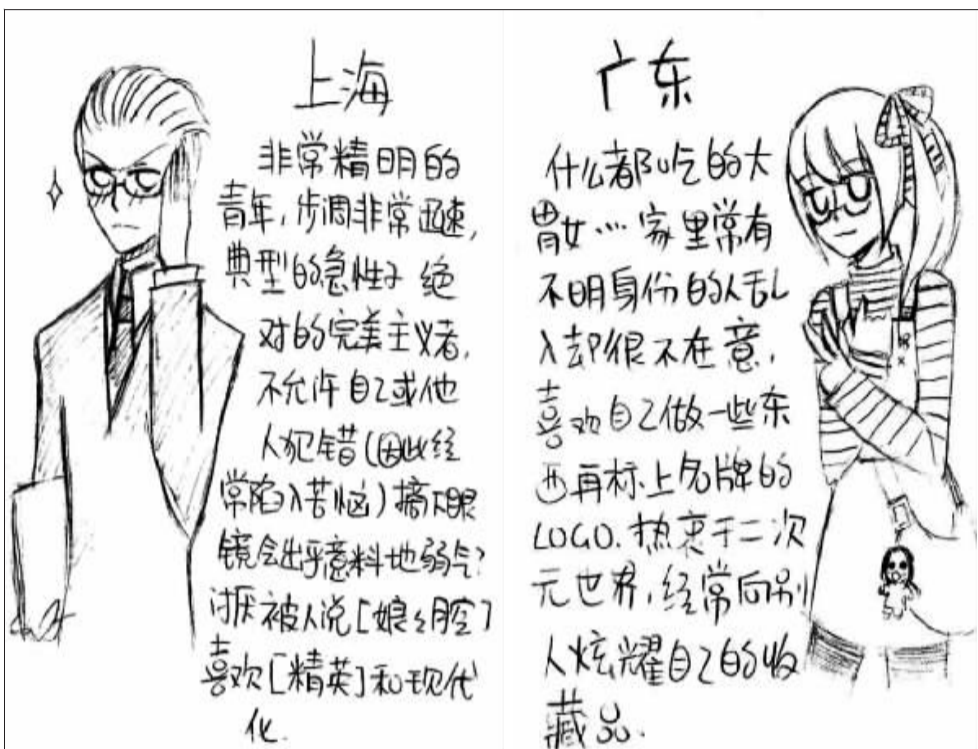 上海
非常精明的
青年,步调非常迅速,
典型的急性子 绝
对的完美主义者,
不允许自己或他
人犯错(因此经
常陷入苦恼)摘下眼
镜会出乎意料地弱气?
讨厌被人说[娘娘腔]
喜欢[精英]和现代
化.
广东
什么都吃的大
胃女…家里常有
不明身份的人乱
入却很不在意,
喜欢自己做一些东
西再标上名牌的
LOGO.热衷于二次
元世界,经常向别
人炫耀自己的收
藏品.